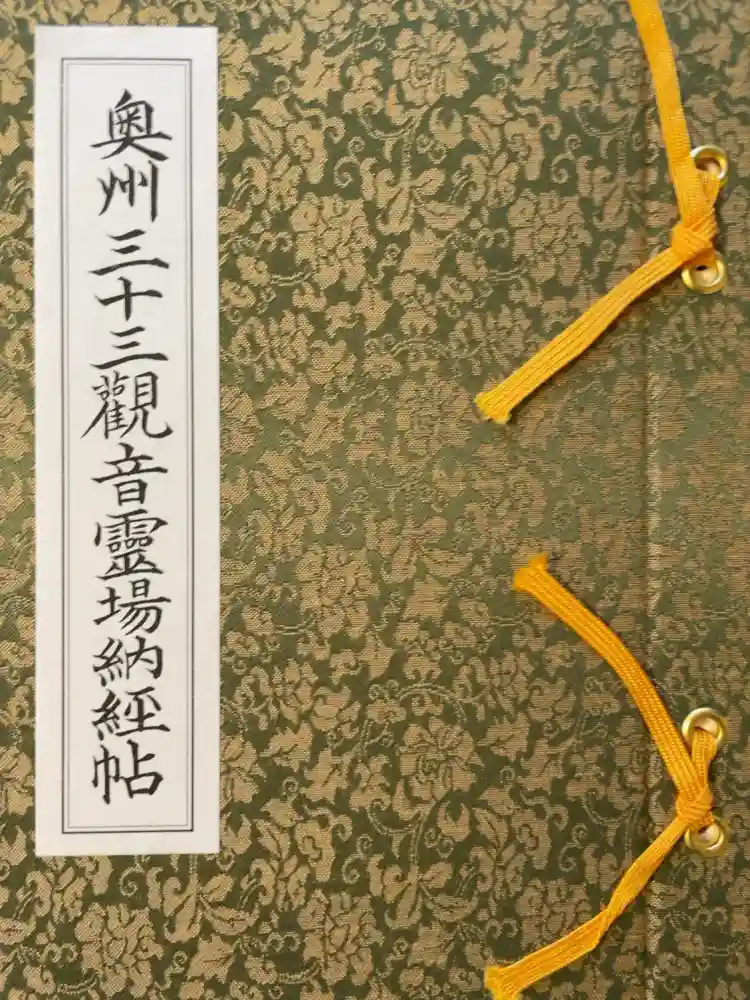 奥州三十三觀音靈場納經帖